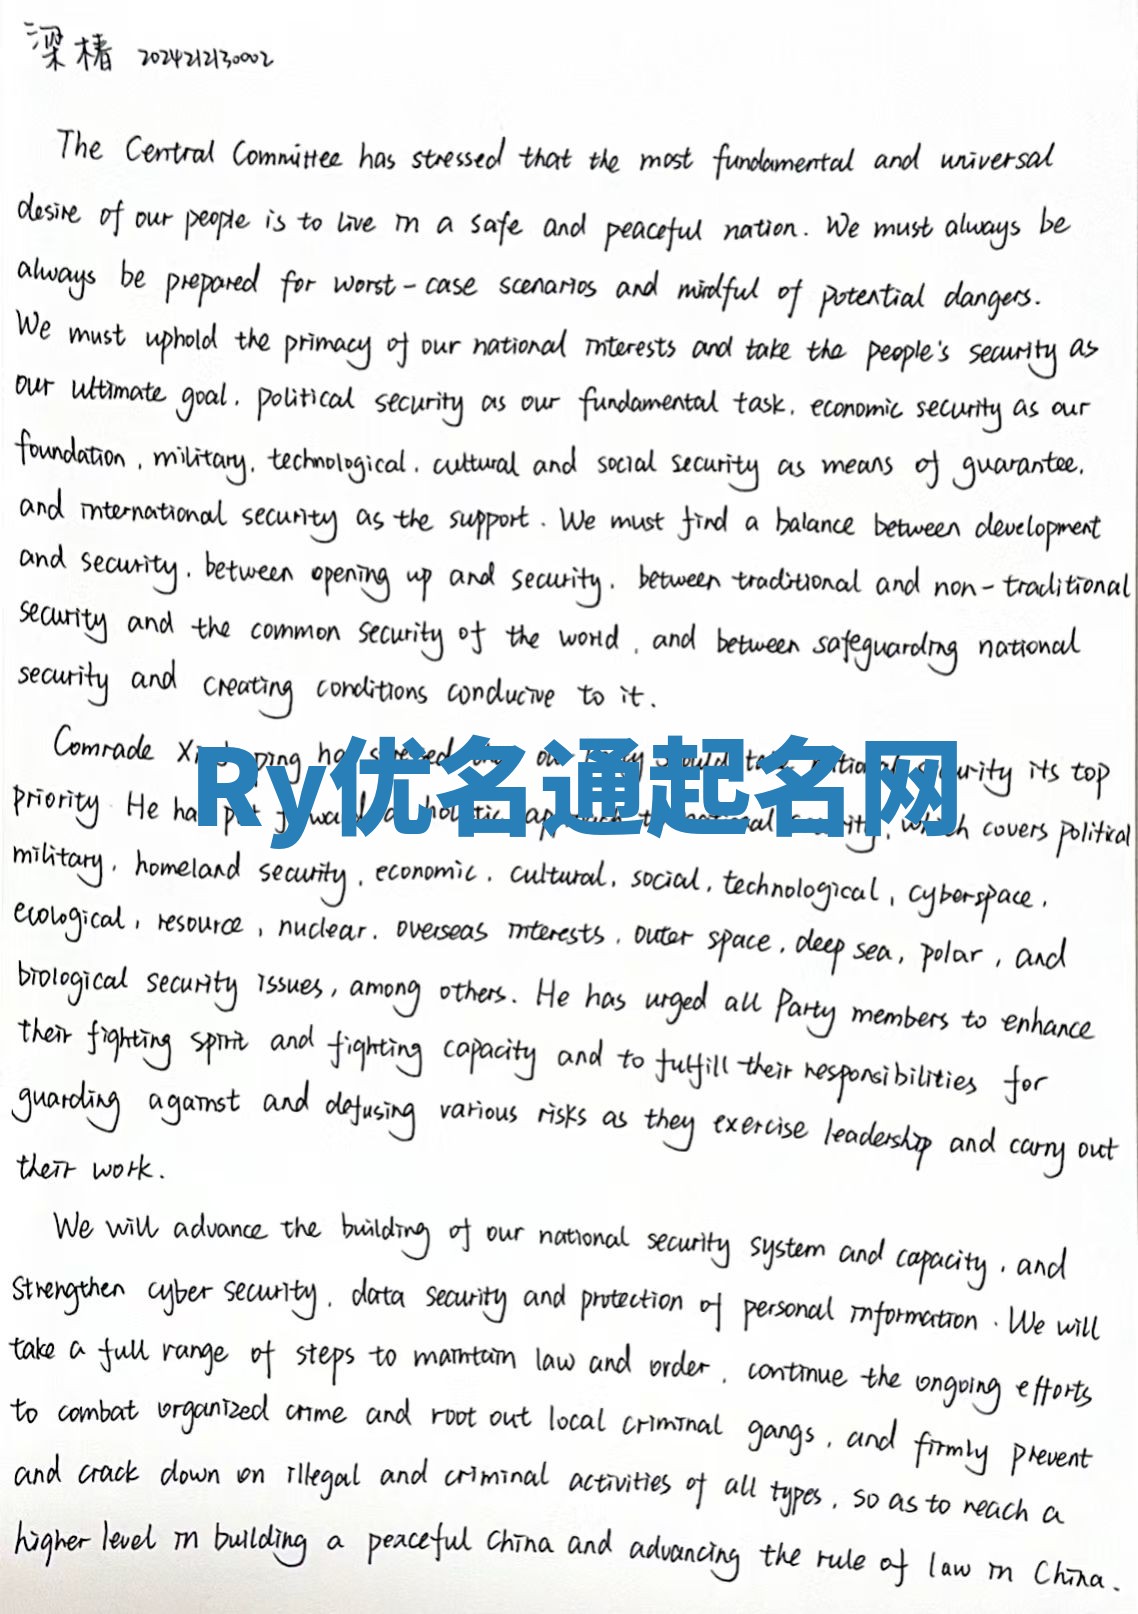 梁椿 2024212130002
The Central Committee has stressed that the most fundamental and universal
desire of our people is to live in a safe and peaceful nation. We must always be
always be prepared for worst-case scenarios and mindful of potential dangers.
We must uphold the primacy of our national interests and take the people's security as
our ultimate goal, political security as our fundamental task, economic security as our
foundation, military, technological, cultural and social security as means of guarantee,
and international security as the support. We must find a balance between development
and security, between opening up and security, between traditional and non-traditional
security and the common security of the world, and between safeguarding national
security and creating conditions conducive to it.
Comrade Xi ping has stressed our should national security its top
Ry优名通起名网
priority. He has put forward a holistic approach to national security, which covers political
military, homeland security, economic, cultural, social, technological, cyberspace,
ecological, resource, nuclear, overseas interests, outer space, deep sea, polar, and
biological security issues, among others. He has urged all Party members to enhance
their fighting spirit and fighting capacity and to fulfill their responsibilities for
guarding against and defusing various risks as they exercise leadership and carry out
their work.
We will advance the building of our national security system and capacity, and
strengthen cyber security, data security and protection of personal information. We will
take a full range of steps to maintain law and order, continue the ongoing efforts
to combat organized crime and root out local criminal gangs, and firmly prevent
and crack down on illegal and criminal activities of all types, so as to reach a
higher level in building a peaceful China and advancing the rule of law in China.